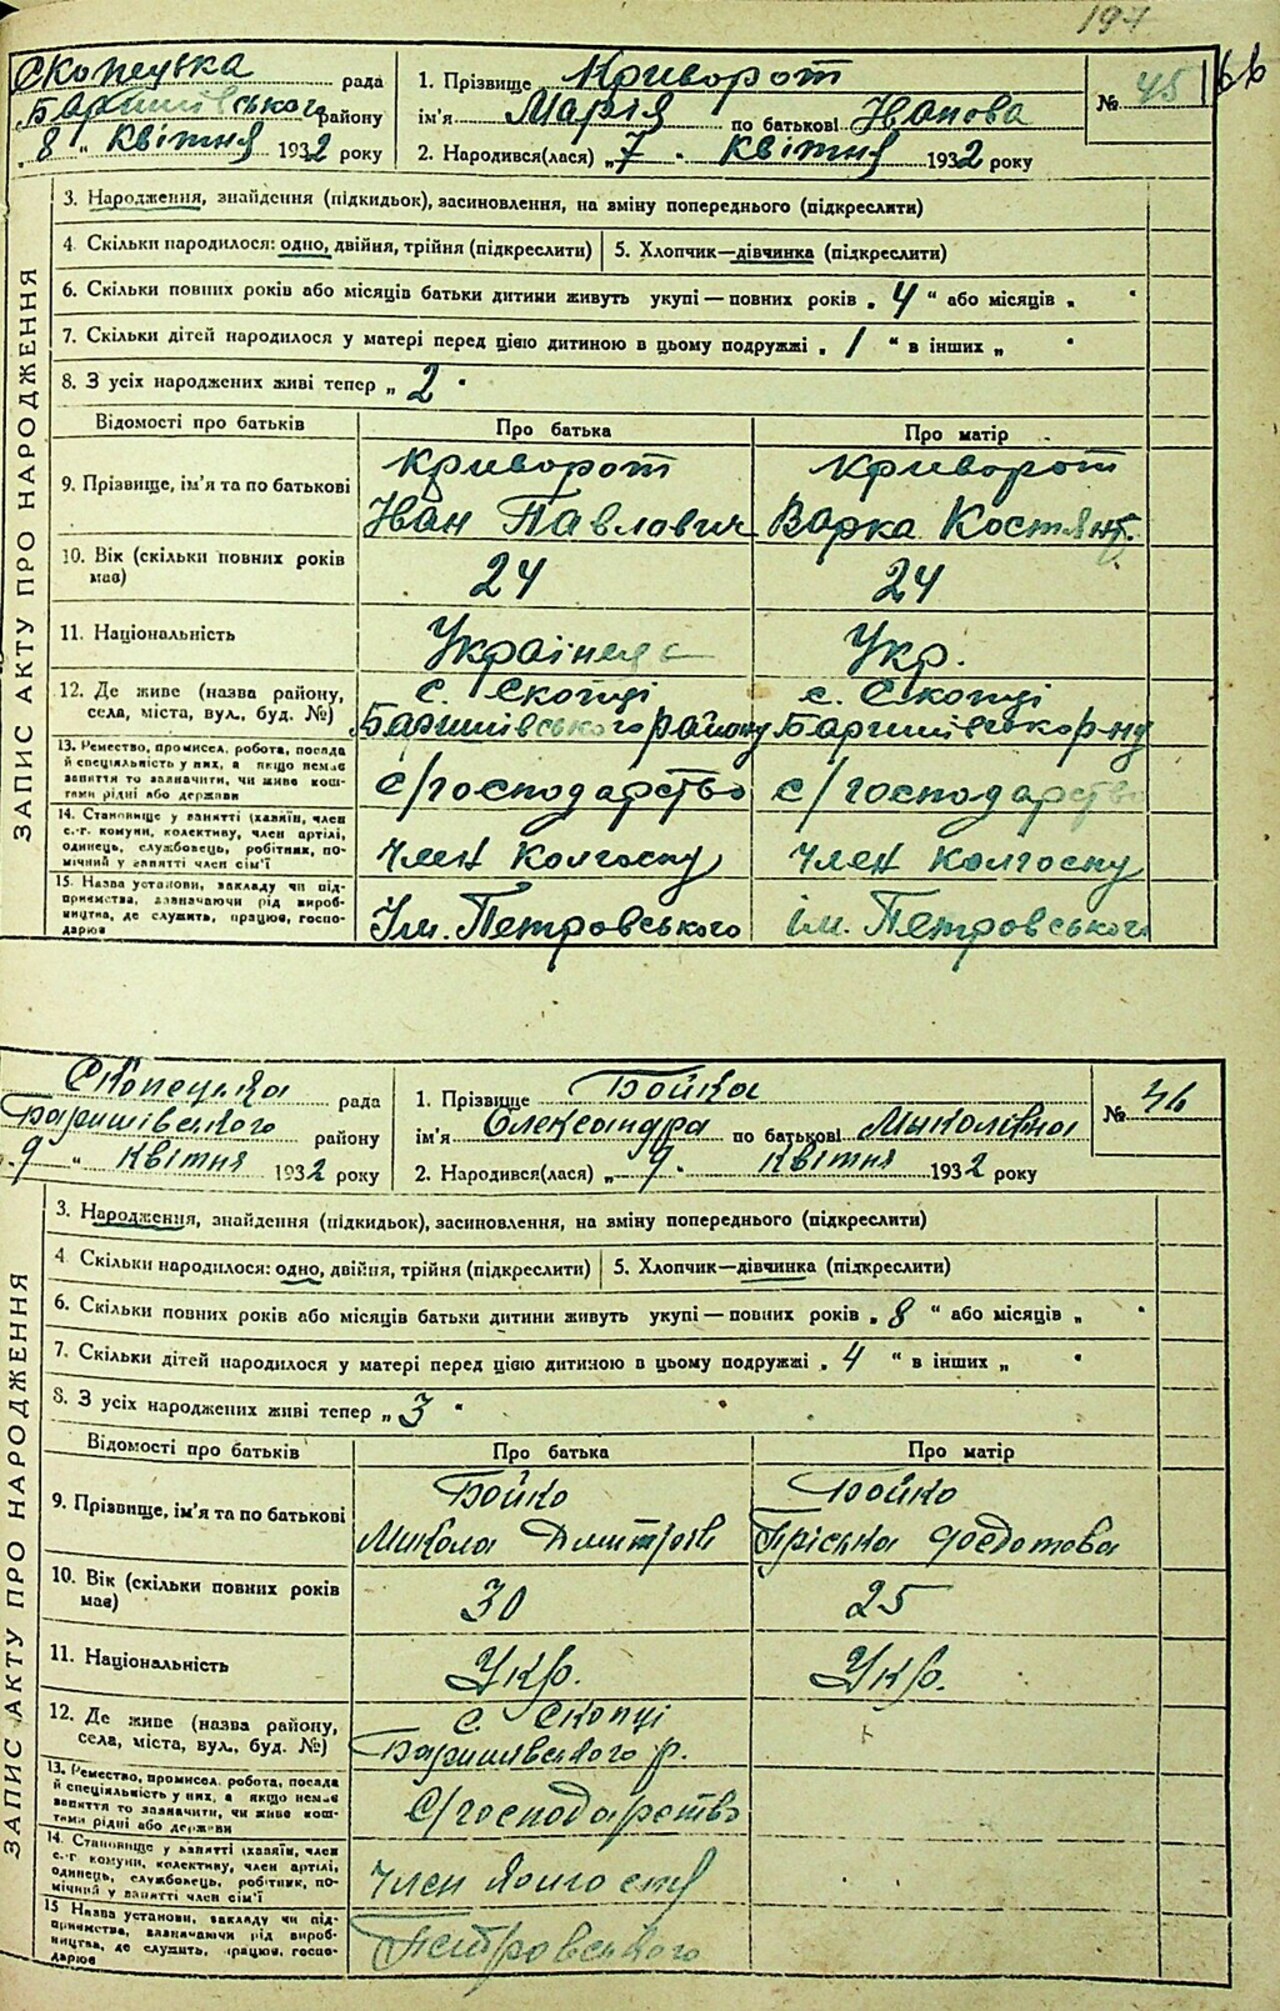 197
66
Скопецька рада
Баришівського району
„8“ квітня 1932 року
1. Прізвище Криворот
ім'я Марія по батькові Іванова
2. Народився(лася) „7“ квітня 1932 року
№ 45
ЗАПИС АКТУ ПРО НАРОДЖЕННЯ
3. Народження, знайдення (підкидьок), засиновлення, на зміну попереднього (підкреслити)
4. Скільки народилося: одно, двійня, трійня (підкреслити) 5. Хлопчик—дівчинка (підкреслити)
6. Скільки повних років або місяців батьки дитини живуть укупі — повних років „4“ або місяців „ “
7. Скільки дітей народилося у матері перед цією дитиною в цьому подружжі „1“ в інших „ “
8. З усіх народжених живі тепер „2“
Відомості про батьків Про батька Про матір
9. Прізвище, ім'я та по батькові
Криворот Криворот
Іван Павлович Варка Костянт.
10. Вік (скільки повних років має) 24 24
11. Національність Українець Укр.
12. Де живе (назва району, села, міста, вул., буд. №)
с. Скопці с. Скопці
Баришівського району Баришівськ р-ну
13. Ремество, промисел, робота, посада
й спеціяльність у них, а якщо немає
заняття то зазначити, чи живе кош-
тами рідні або держави
с/господарство с/господарство
14. Становище у занятті (хазяїн, член
с.-г. комуни, колективу, член артілі,
одинець, службовець, робітник, по-
мічний у занятті член сім'ї
член колгоспу член колгоспу
15. Назва установи, закладу чи під-
приємства, зазначаючи рід вироб-
ництва, де служить, працює, госпо-
дарює
Ім. Петровського ім. Петровського
Скопецька рада
Баришівського району
„9“ квітня 1932 року
1. Прізвище Бойка
ім'я Олександра по батькові Миколівна
2. Народився(лася) „9“ квітня 1932 року
№ 46
ЗАПИС АКТУ ПРО НАРОДЖЕННЯ
3. Народження, знайдення (підкидьок), засиновлення, на зміну попереднього (підкреслити)
4. Скільки народилося: одно, двійня, трійня (підкреслити) 5. Хлопчик—дівчинка (підкреслити)
6. Скільки повних років або місяців батьки дитини живуть укупі — повних років „8“ або місяців „ “
7. Скільки дітей народилося у матері перед цією дитиною в цьому подружжі „4“ в інших „ “
8. З усіх народжених живі тепер „3“
Відомості про батьків Про батька Про матір
9. Прізвище, ім'я та по батькові
Бойко Бойко
Микола Дмитрів Пріська Федотова
10. Вік (скільки повних років має) 30 25
11. Національність Укр. Укр.
12. Де живе (назва району, села, міста, вул., буд. №)
с. Скопці
Баришівського р.
13. Ремество, промисел, робота, посада
й спеціяльність у них, а якщо немає
заняття то зазначити, чи живе кош-
тами рідні або держави
с/господарство
14. Становище у занятті (хазяїн, член
с.-г. комуни, колективу, член артілі,
одинець, службовець, робітник, по-
мічний у занятті член сім'ї
член колгоспу
15 Назва установи, закладу чи під-
приємства, зазначаючи рід вироб-
ництва, де служить, працює, госпо-
дарює
Петровського